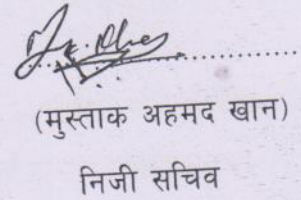 (मुस्ताक अहमद खान)
निजी सचिव